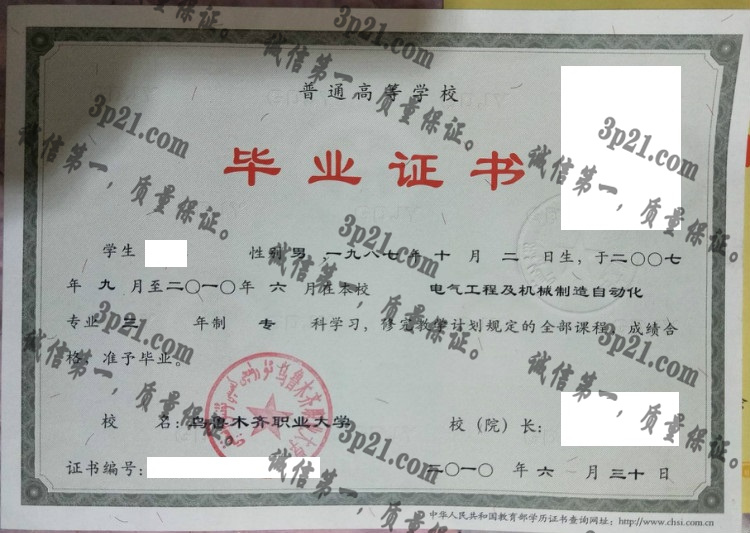 普通高等学校
毕业证书
学生 性别 男，一九八七年 十 月 二 日生，于二〇〇七
年 九 月至二〇一〇年 六 月在本校 电气工程及机械制造自动化
专业 三 年制 专 科学习，修完教学计划规定的全部课程，成绩合
格，准予毕业。
校 名：乌鲁木齐职业大学 校（院）长：
证书编号： 二〇一〇 年 六 月 三十 日
中华人民共和国教育部学历证书查询网址：http://www.chsi.com.cn
乌鲁木齐职业大学
3p21.com
诚信第一，质量保证。
3p21.com
诚信第一，质量保证。
3p21.com
诚信第一，质量保证。
3p21.com
诚信第一，质量保证。
3p21.com
诚信第一，质量保证。
3p21.com
诚信第一，质量保证。
3p21.com
诚信第一，质量保证。
质量保证。